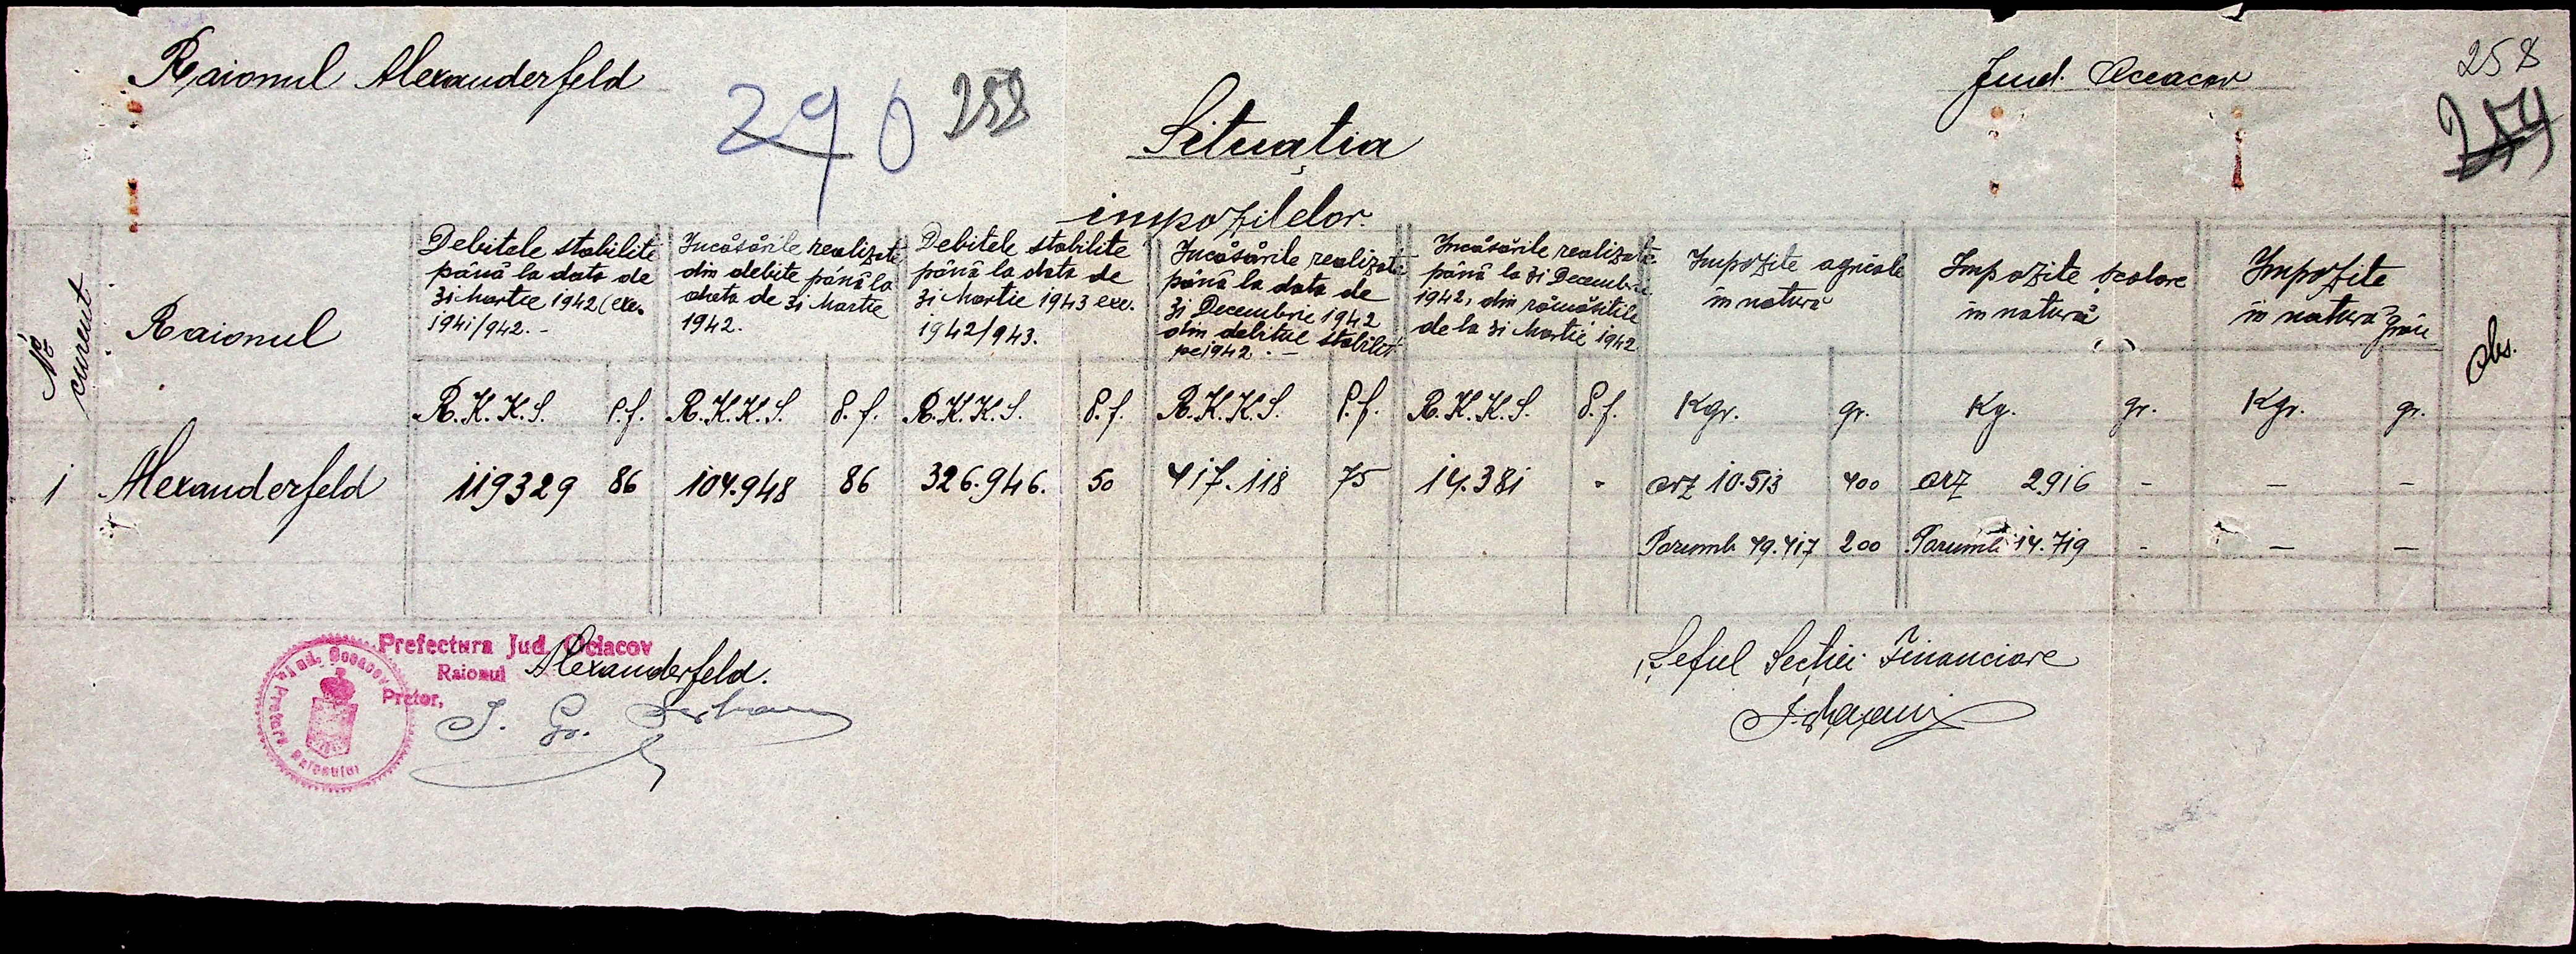 Raionul Alexanderfeld
290
258
Jud. Oceacov
258
Situația
impozitelor.
No curent
Raionul
Debitele stabilite
până la data de
31 Martie 1942 (exe.
1941/942.-
Încăsările realizate
din debite până la
data de 31 Martie
1942.
Debitele stabilite
până la data de
31 Martie 1943 exe.
1942/943.
Încăsările realizate
până la data de
31 Decembrie 1942
din debitue stabilit
pe 1942.-
Încăsările realizate
până la 31 Decembrie
1942, din rămăsitile
de la 31 Martie 1942
Impozite agricole
în natură
Impozite scolare
în natură
Impozite
în natură grâu
Obs.
R.K.K.S. P.f. R.K.K.S. P.f. R.K.K.S. P.f. R.K.K.S. P.f. R.K.K.S. P.f. Kgr. gr. Kg. gr. Kgr. gr.
1 Alexanderfeld 119329 86 104.948 86 326.946. 50 417.118 75 14.381 - orz 10.513 400 orz 2916 - - -
Porumb 49.417 200 Porumb 14.719 - - -
Prefectura Jud. Ociacov
Raionul Alexanderfeld.
Pretor,
Jud. Oceacov
Pretura Raionului
Șeful Secției Financiare